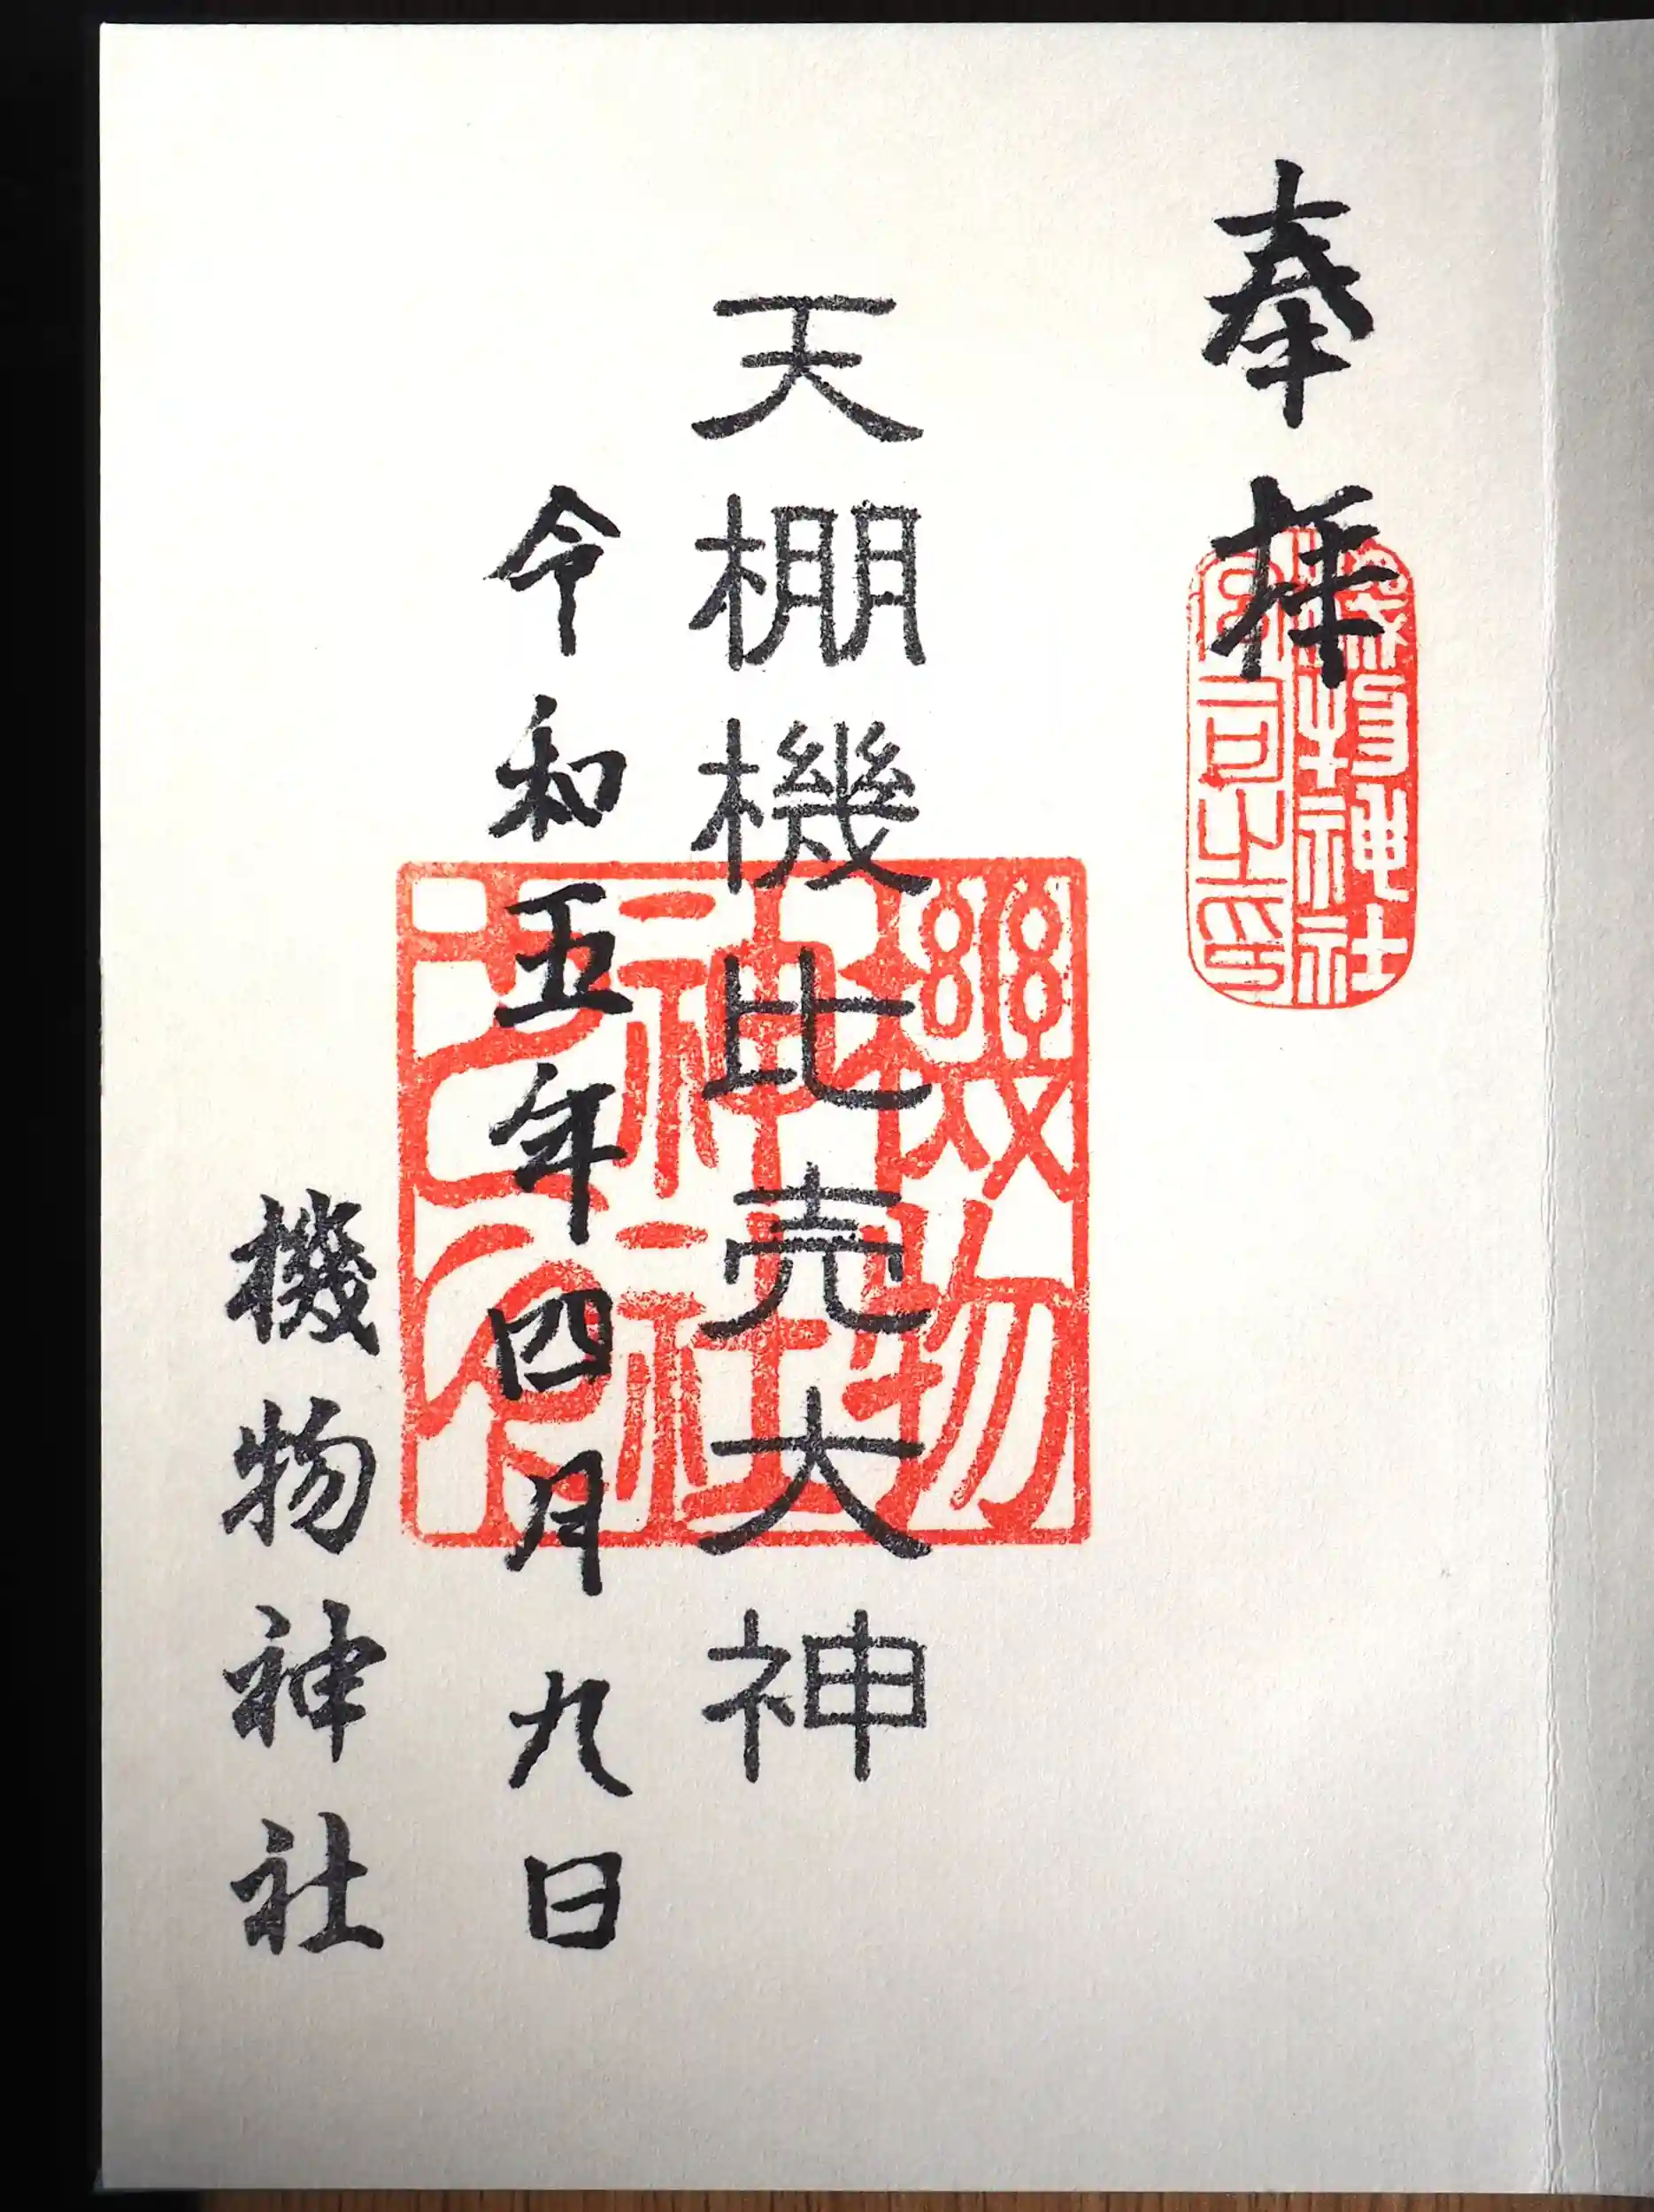 奉拝
機物神社
宮司之印
天棚機比売大神
機物神社
令和五年四月九日
機物神社